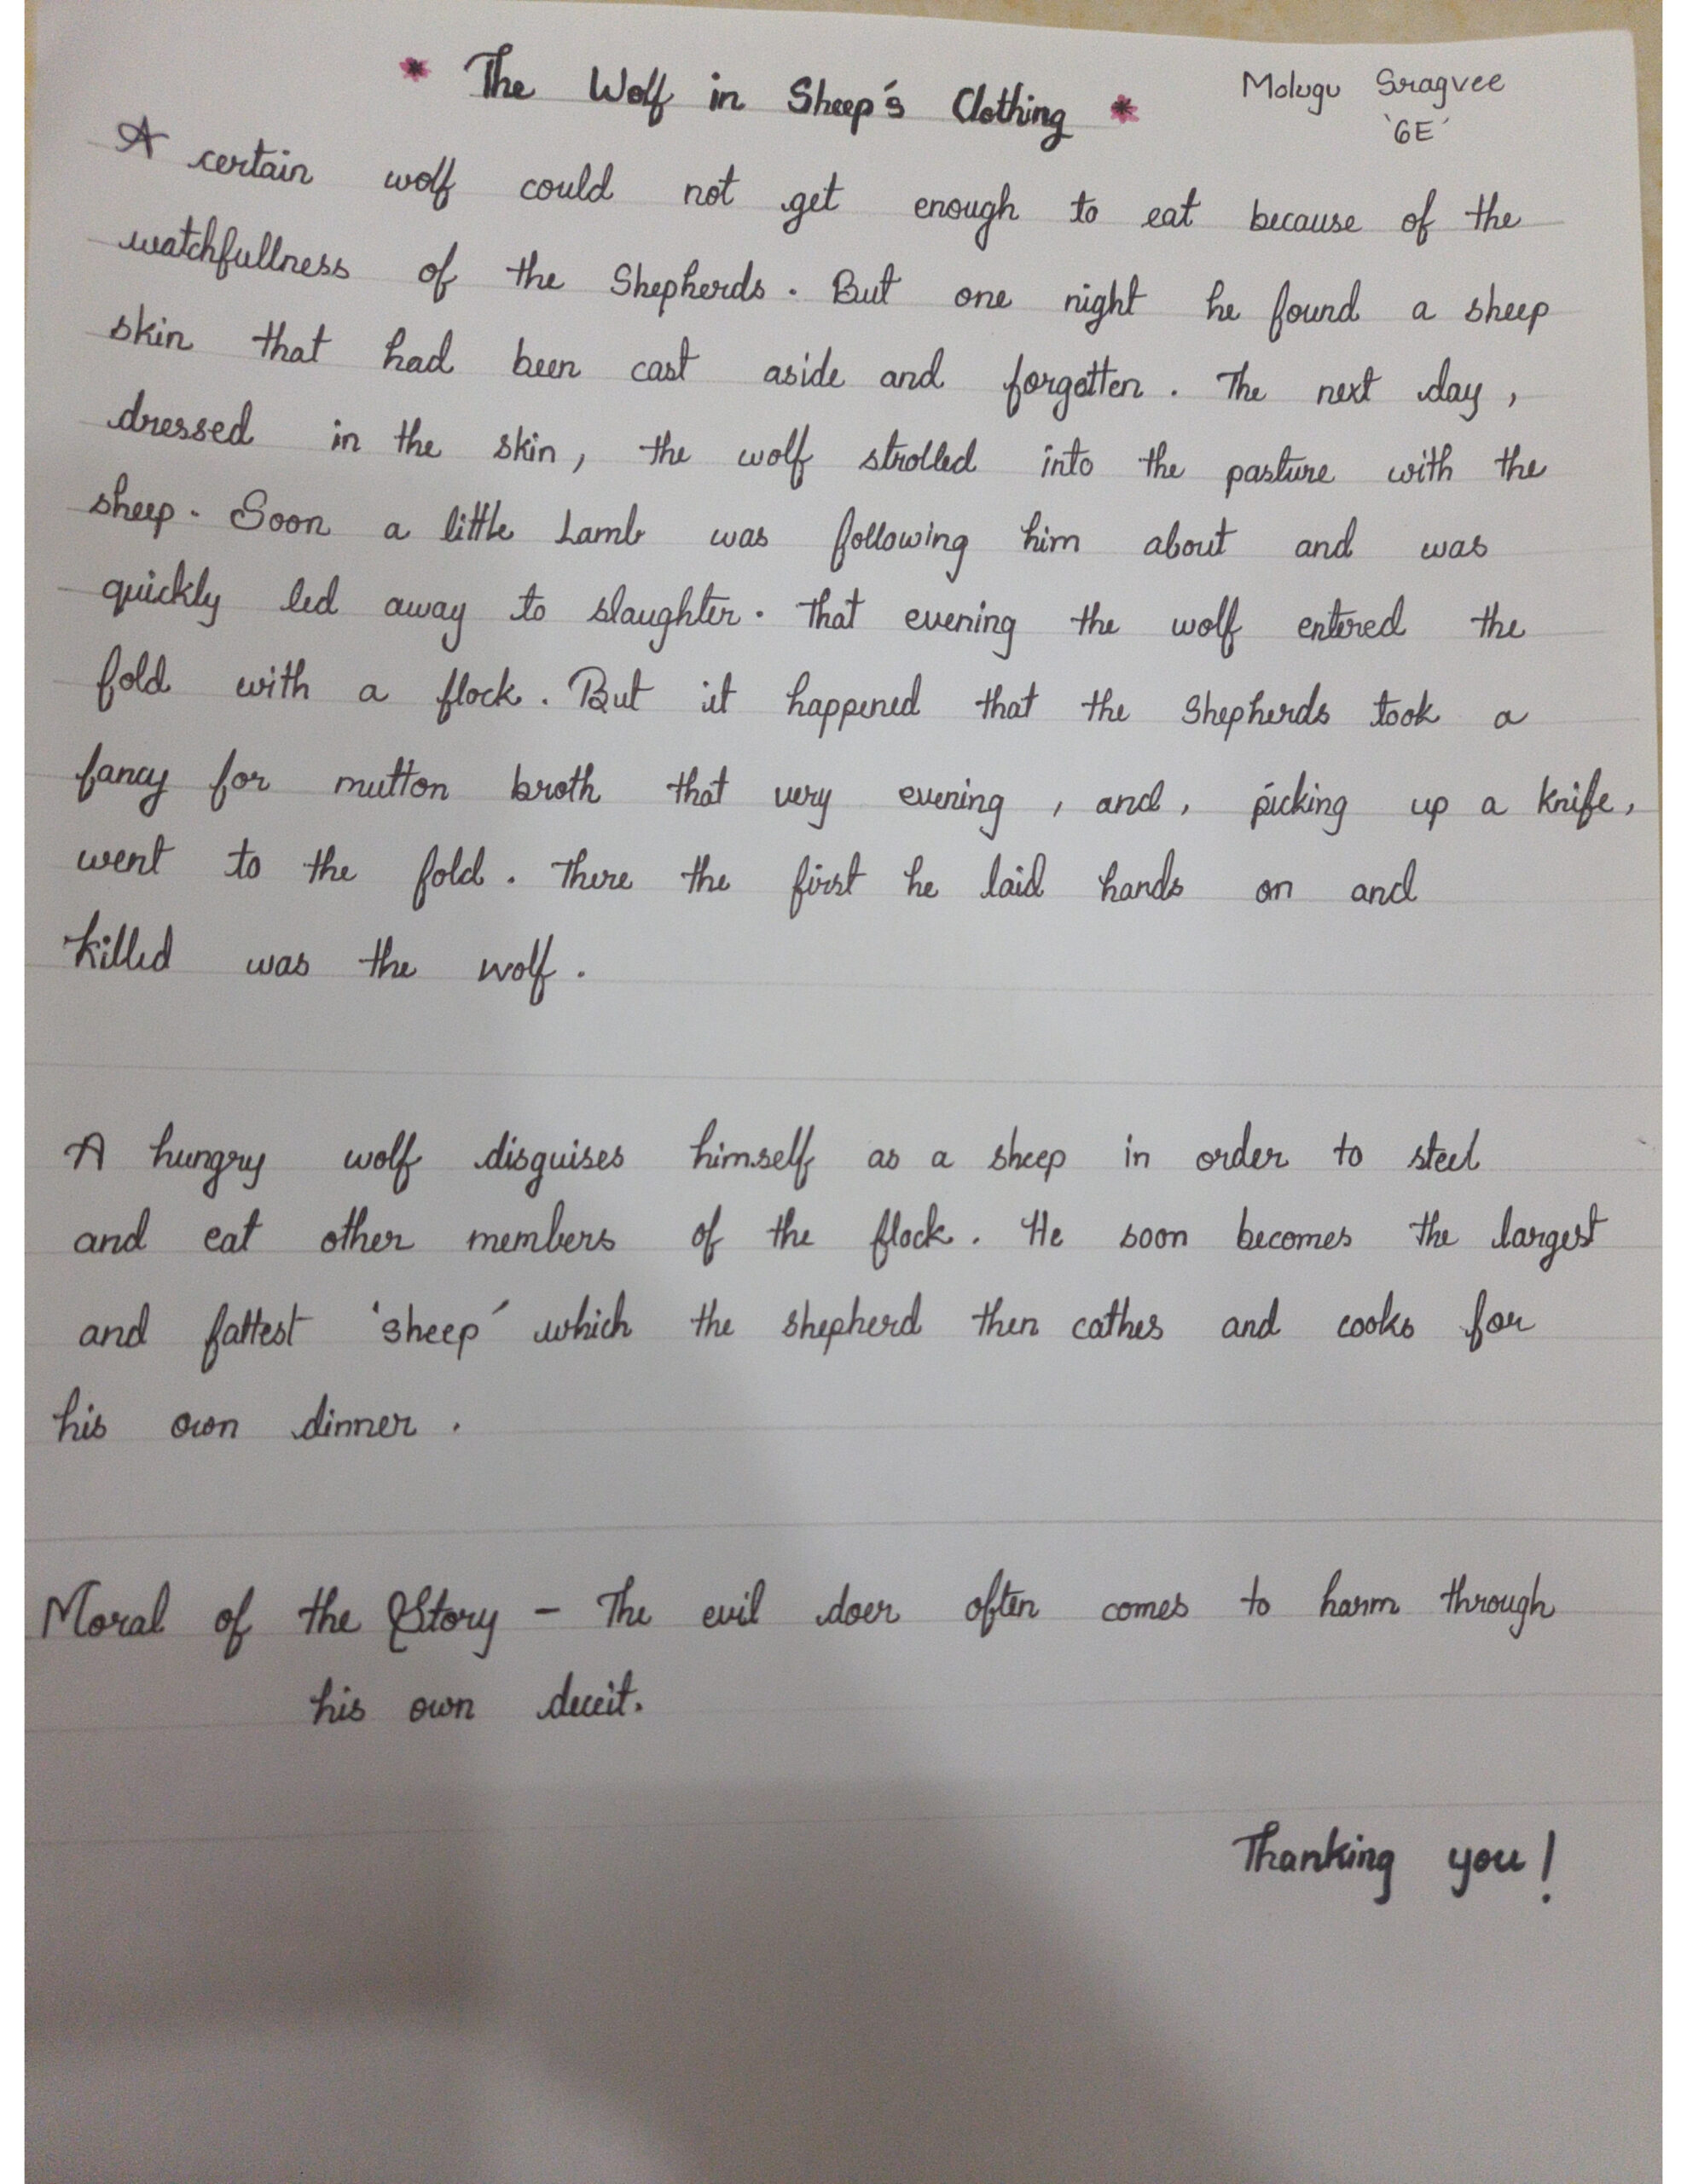 * The Wolf in Sheep's Clothing *
Molugu Sragvee
'6E'
A certain wolf could not get enough to eat because of the
watchfullness of the Shepherds. But one night he found a sheep
skin that had been cast aside and forgotten. The next day,
dressed in the skin, the wolf strolled into the pasture with the
sheep. Soon a little Lamb was following him about and was
quickly led away to slaughter. That evening the wolf entered the
fold with a flock. But it happened that the Shepherds took a
fancy for mutton broth that very evening, and, picking up a knife,
went to the fold. There the first he laid hands on and
killed was the wolf.
A hungry wolf disguises himself as a sheep in order to steel
and eat other members of the flock. He soon becomes the largest
and fattest 'sheep' which the shepherd then cathes and cooks for
his own dinner.
Moral of the Story - The evil doer often comes to harm through
his own deceit.
Thanking you!